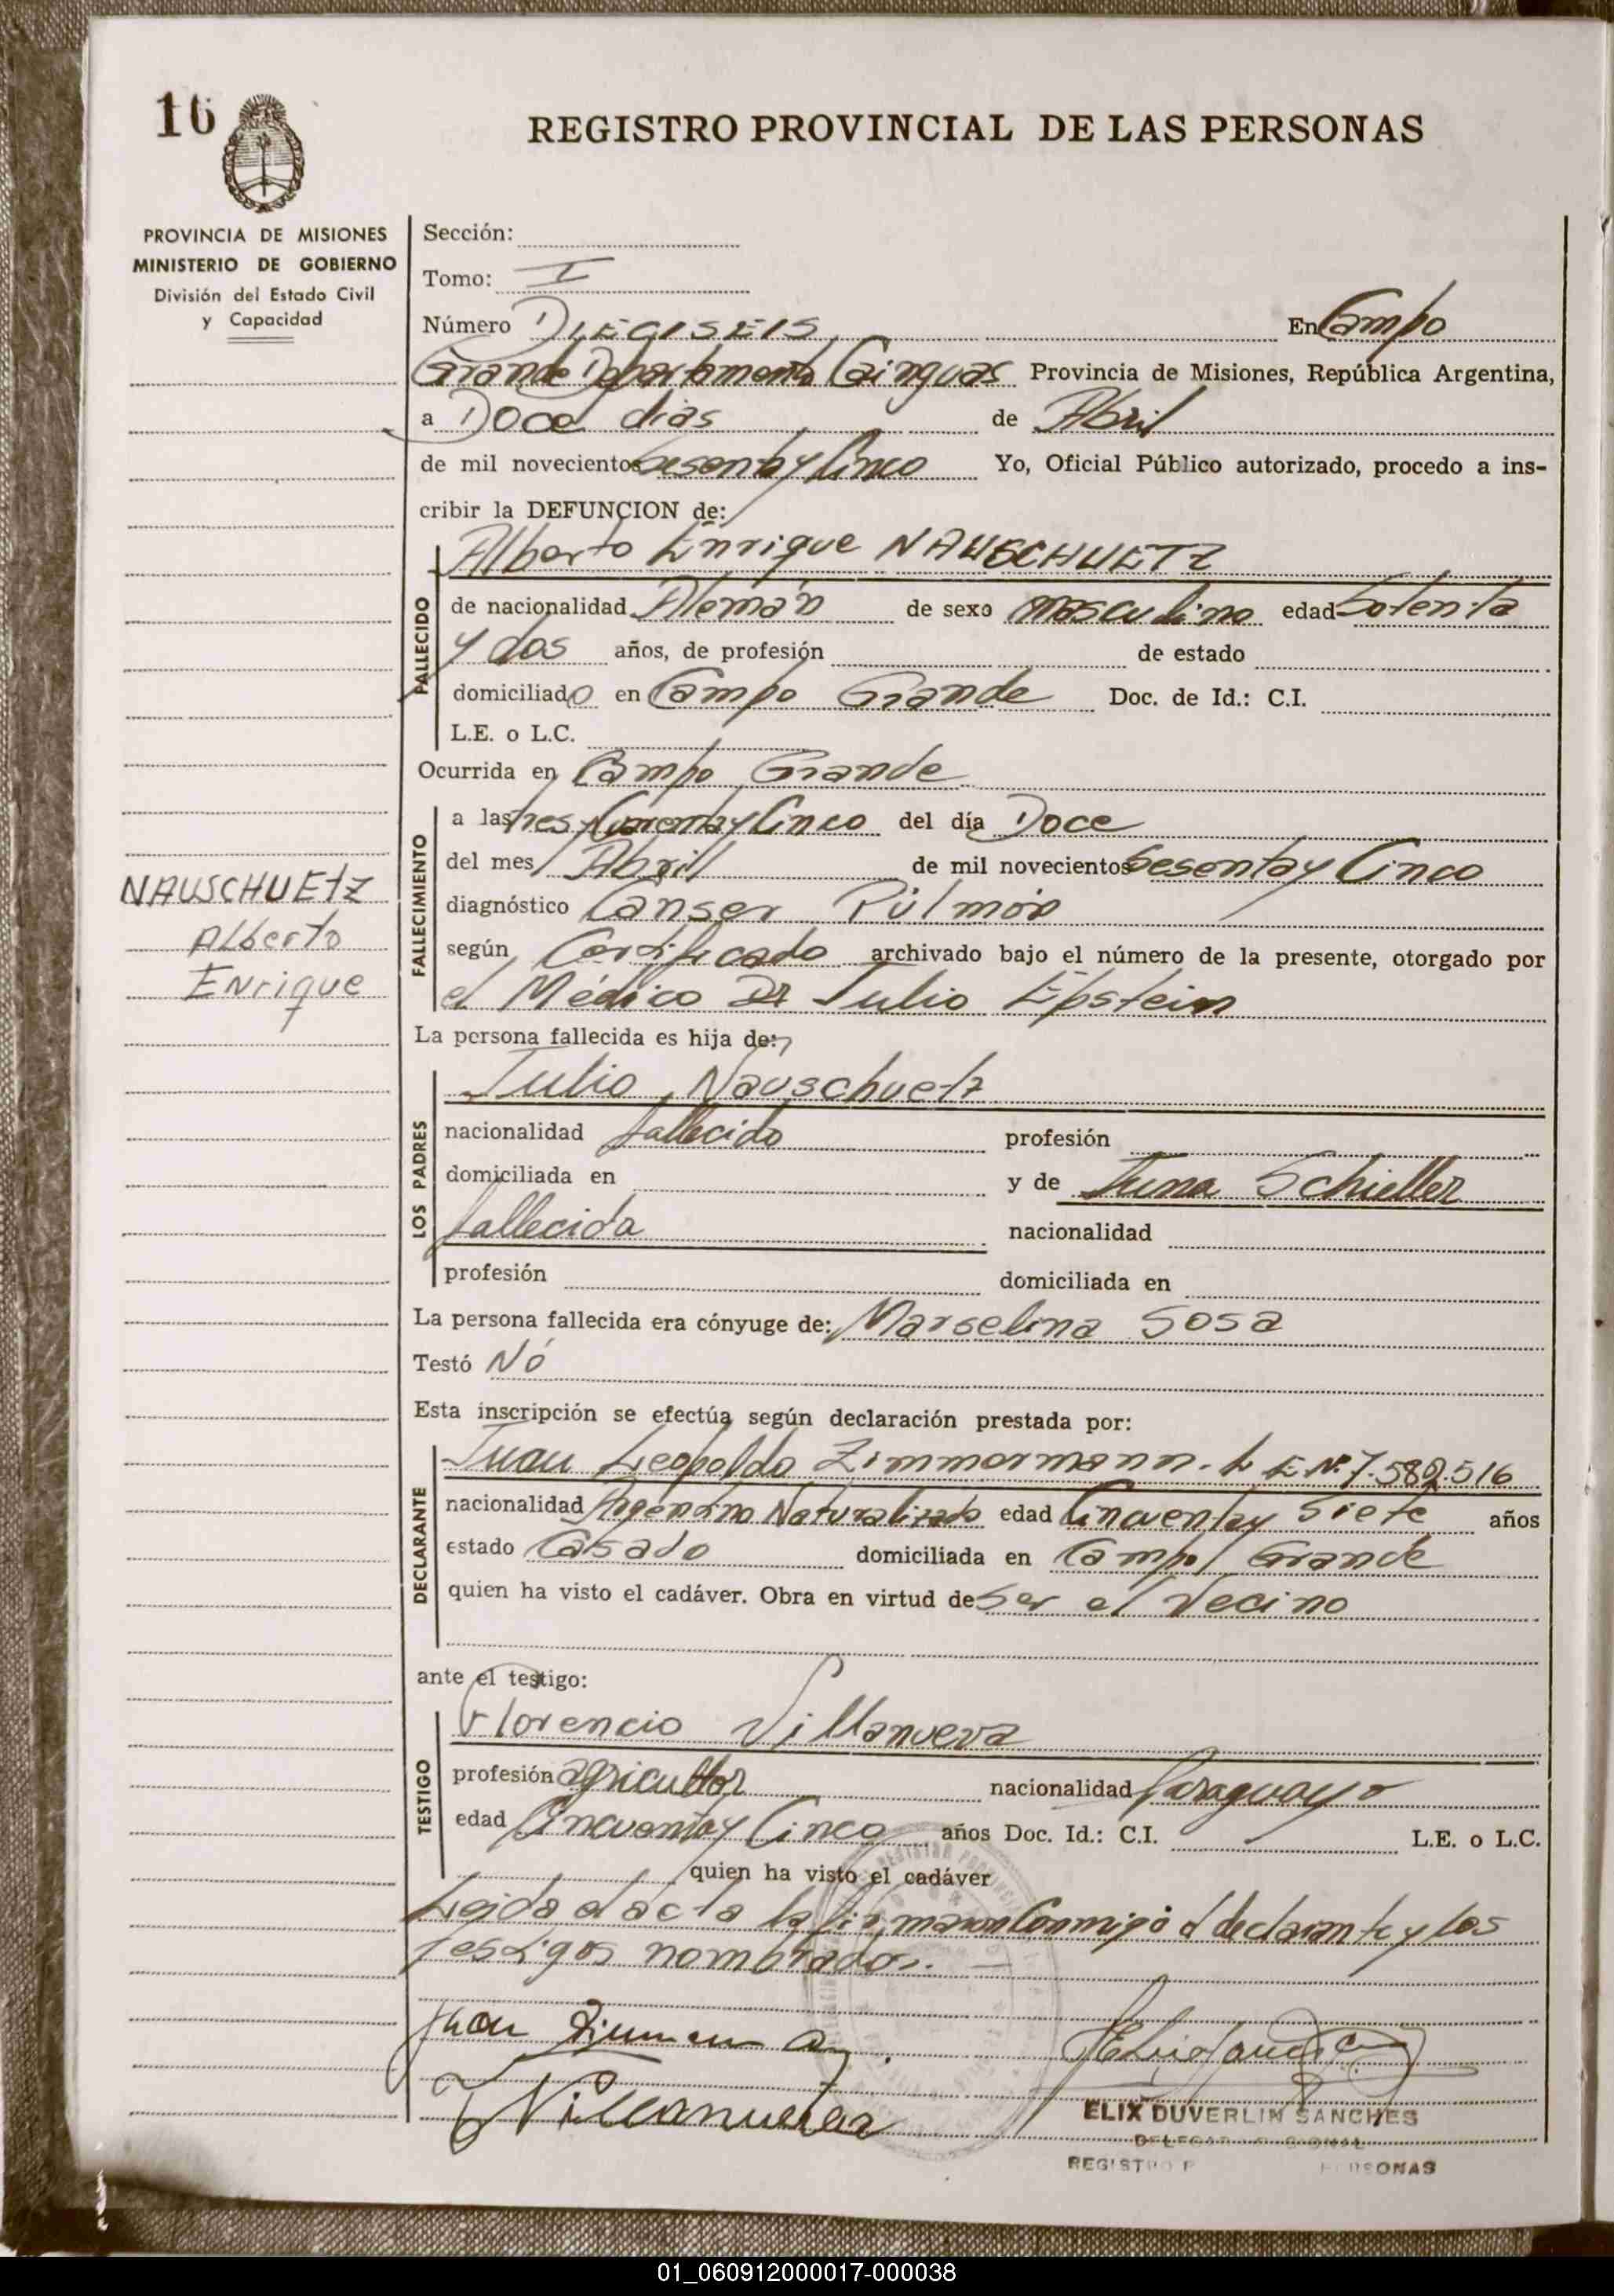 16
REGISTRO PROVINCIAL DE LAS PERSONAS
PROVINCIA DE MISIONES
MINISTERIO DE GOBIERNO
División del Estado Civil
y Capacidad
Sección:
Tomo: I
Número DIECISEIS En Campo
Grande Departamento Cainguas Provincia de Misiones, República Argentina,
a Doce dias de Abril
de mil novecientos Sesenta y Cinco Yo, Oficial Público autorizado, procedo a ins-
cribir la DEFUNCION de:
Alberto Enrique NAUSCHUETZ
FALLECIDO
de nacionalidad Alemán de sexo masculino edad Setenta
y dos años, de profesión de estado
domiciliado en Campo Grande Doc. de Id.: C.I.
L.E. o L.C.
Ocurrida en Campo Grande
FALLECIMIENTO
a las tres y Cuarenta y Cinco del día Doce
del mes Abril de mil novecientos Sesenta y Cinco
diagnóstico Canser Púlmón
según Certificado archivado bajo el número de la presente, otorgado por
el Médico Dr Julio Epstein
NAUSCHUEtZ
Alberto
Enrique
La persona fallecida es hija de:
Julio Nauschuetz
LOS PADRES
nacionalidad fallecido profesión
domiciliada en y de Schieller
fallecida nacionalidad
profesión domiciliada en
La persona fallecida era cónyuge de: Marselina Sosa
Testó Nó
Esta inscripción se efectúa según declaración prestada por:
Juan Leopoldo Zimmermann. L E Nº 7.582.516
DECLARANTE
nacionalidad Argentino Naturalizado edad Cincuenta y Siete años
estado Casado domiciliada en Campo Grande
quien ha visto el cadáver. Obra en virtud de Ser el Vecino
ante el testigo:
Florencio Villanueva
TESTIGO
profesión agricultor nacionalidad Paraguayo
edad Cincuenta y Cinco años Doc. Id.: C.I. L.E. o L.C.
quien ha visto el cadáver
Leida el acta la firmaron Conmigo el declarante y los
testigos nombrados.
Juan
Villanueva
ELIX DUVERLIN SANCHES
REGISTRO P PERSONAS
01_060912000017-000038